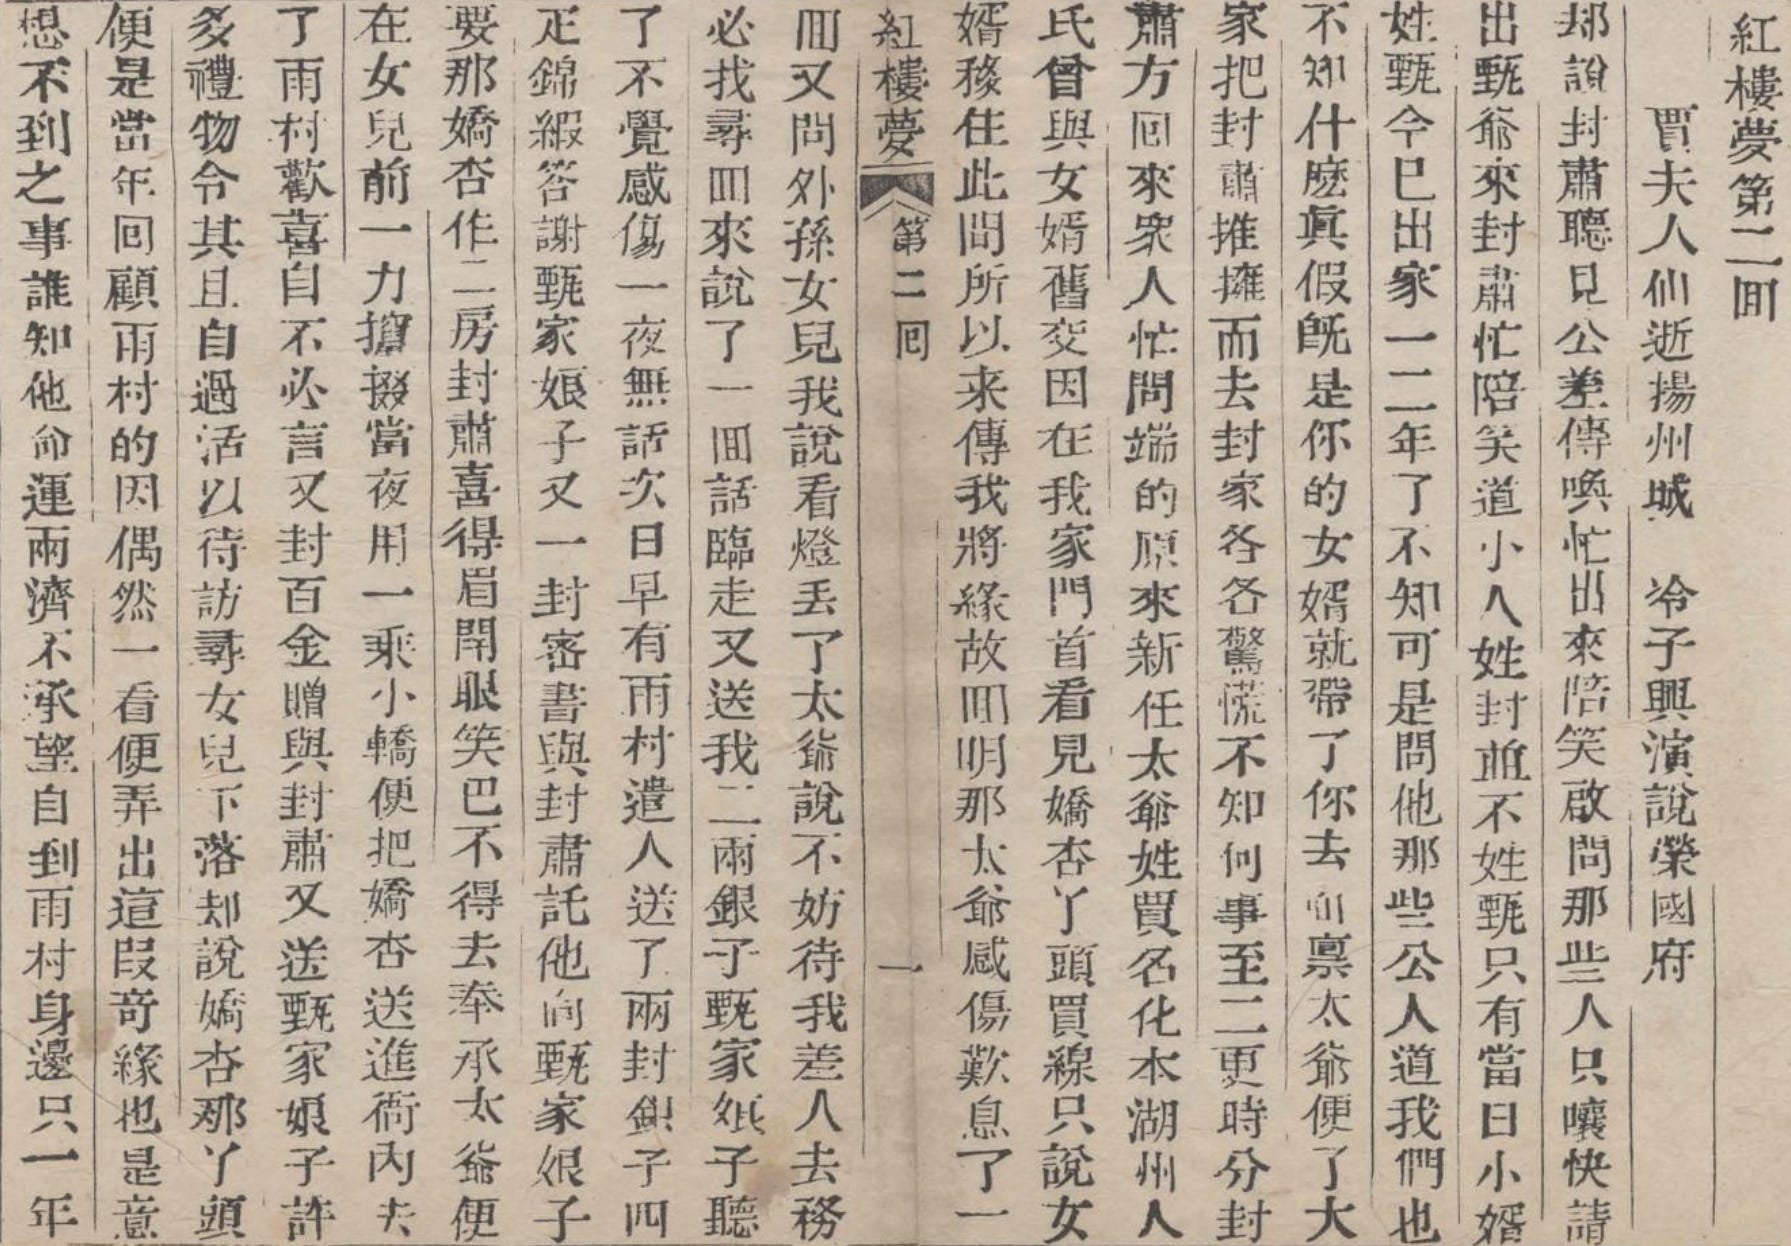 紅樓夢第二回
賈夫人仙逝揚州城　冷子興演說榮國府
却說封肅聽見公差傳喚忙出來陪笑啟問那些人只嚷快請
出甄爺來封肅忙陪笑道小人姓封並不姓甄只有當日小婿
姓甄今已出家一二年了不知可是問他那些公人道我們也
不知什麽眞假既是你的女婿就帶了你去面禀太爺便了大
家把封肅推擁而去封家各各驚慌不知何事至二更時分封
肅方囘來衆人忙問端的原來新任太爺姓賈名化本湖州人
氏曾與女婿舊交因在我家門首看見嬌杏丫頭買線只說女
婿移住此間所以来傳我將緣故回明那太爺感傷歎息了一
紅樓夢　第二囘　一
回又問外孫女兒我說看燈丢了太爺說不妨待我差人去務
必找尋回來說了一回話臨走又送我二兩銀子甄家娘子聽
了不覺感傷一夜無話次日早有雨村遣人送了兩封銀子四
疋錦緞答謝甄家娘子又一封密書與封肅託他向甄家娘子
要那嬌杏作二房封肅喜得眉開眼笑巴不得去奉承太爺便
在女兒前一力攛掇當夜用一乘小轎便把嬌杏送進衙內去
了雨村歡喜自不必言又封百金贈與封肅又送甄家娘子許
多禮物令其且自過活以待訪尋女兒下落却說嬌杏那丫頭
便是當年囘顧雨村的因偶然一看便弄出這段奇緣也是意
想不到之事誰知他命運兩濟不承望自到雨村身邊只一年